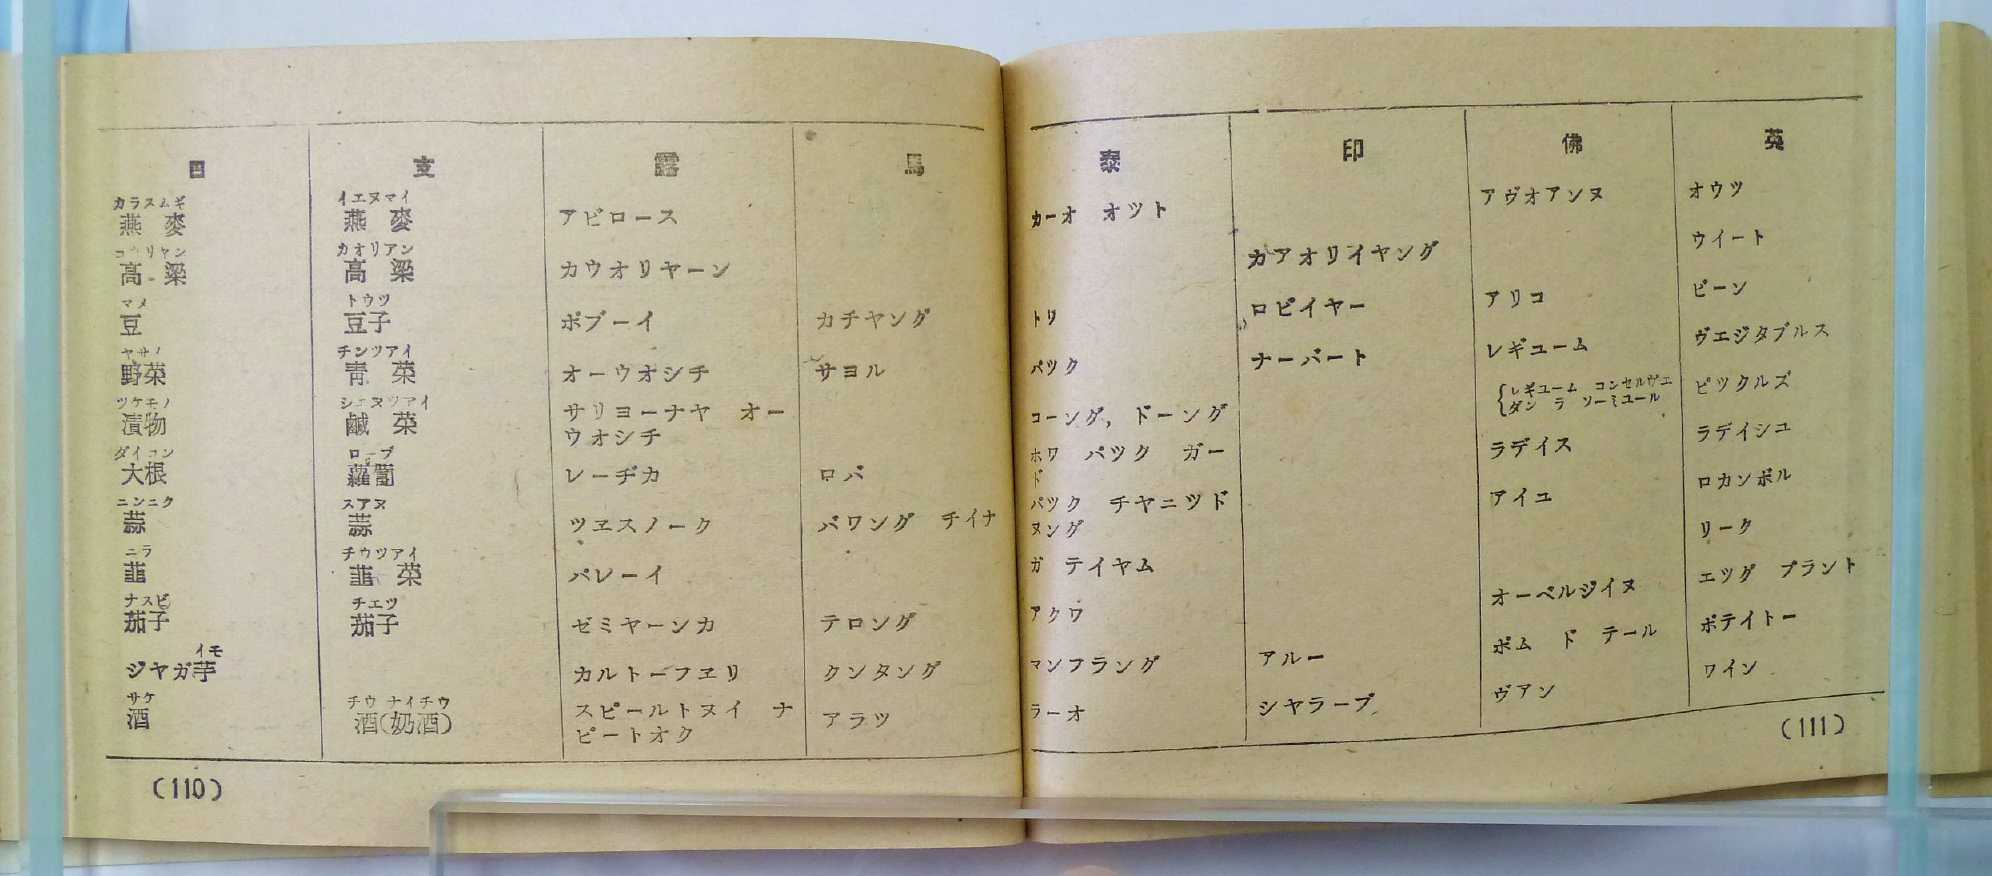 日 支 露 馬 泰 印 佛 英
カラスムギ イエヌマイ
燕麥 燕麥 アビロース カーオ オツト アヴオアンヌ オウツ
コウリヤン カオリアン
高粱 高粱 カウオリヤーン カアオリイヤング ウイート
マメ トウツ
豆 豆子 ボブーイ カチヤング トワ ロビイヤー アリコ ビーン
ヤサイ チンツアイ
野菜 靑菜 オーウオシチ サヨル パツク ナーバート レギユーム ヴエジタブルス
ツケモノ シエヌツアイ
漬物 鹹菜 サリヨーナヤ オーウオシチ コーング, ドーング レギユーム コンセルヴエ ダン ラ ソーミユール ピツクルズ
ダイコン ローブ
大根 蘿蔔 レーヂカ ロバ ホワ パツク ガード ラデイス ラデイシユ
ニンニク スアヌ
蒜 蒜 ツヱスノーク バワング チイナ パツク チヤニツドヌング アイユ ロカンボル
ニラ チウツアイ
韮 韮菜 パレーイ ガ テイヤム リーク
ナスビ チエツ
茄子 茄子 ゼミヤーンカ テロング アクワ オーベルジイヌ エツグ プラント
イモ
ジヤガ芋 カルトーフヱリ クンタング マンフラング アルー ポム ド テール ポテイトー
サケ チウ ナイチウ
酒 酒(奶酒) スピールトヌイ ナピートオク アラツ ラーオ シヤラーブ ヴアン ワイン
(110) (111)